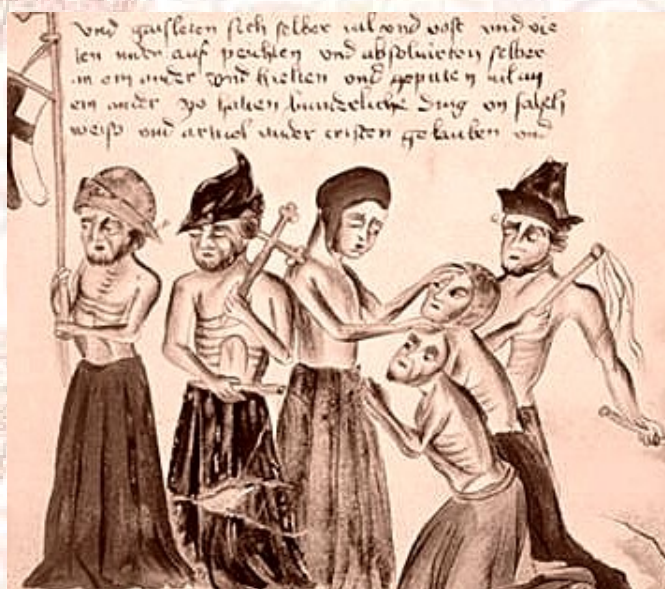 vnd gaisleten sich selber vnd vost vnd vie
len nider auf peychten vnd absoluirten selber
an ein ander vnd hielten vnd geputen
ein ander yo hatten wunderliche ding vn
weiß vnd artickl wider cristen gelauben vnd